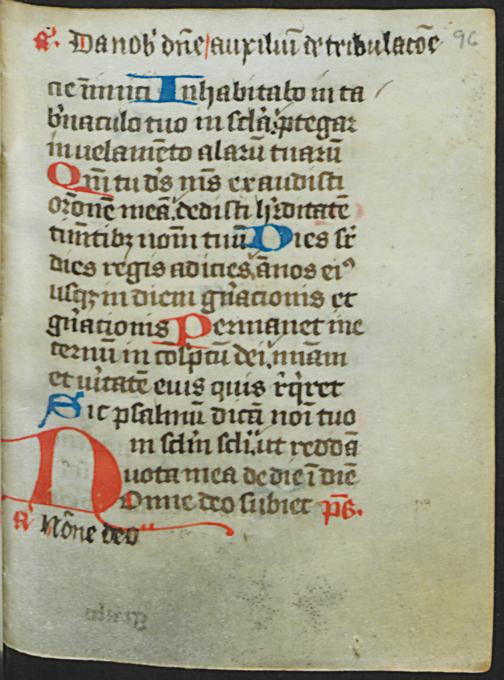 a Da nob dne auxiliu de tribulacõe 96
cie inimici Inhabitabo in ta
bnaculo tuo in scla ptegar
in uelamēto alarū tuarū
Qm̄ tu ds ms exaudisti
orōnē meā dedisti hrditatē
timētibz nom̄ tuū Dies sr
dies regis adicies ānos ei9
usqz in diem gnacionis et
gnacionis Permanet in e
ternū in cōspctu dei miām
et uitatē eius quis rqret
Sic psalmū dicā noī tuo
in sclm scli ut reddā
uota mea de die ī diē
Nonne deo subiet ps
a Nōne deo